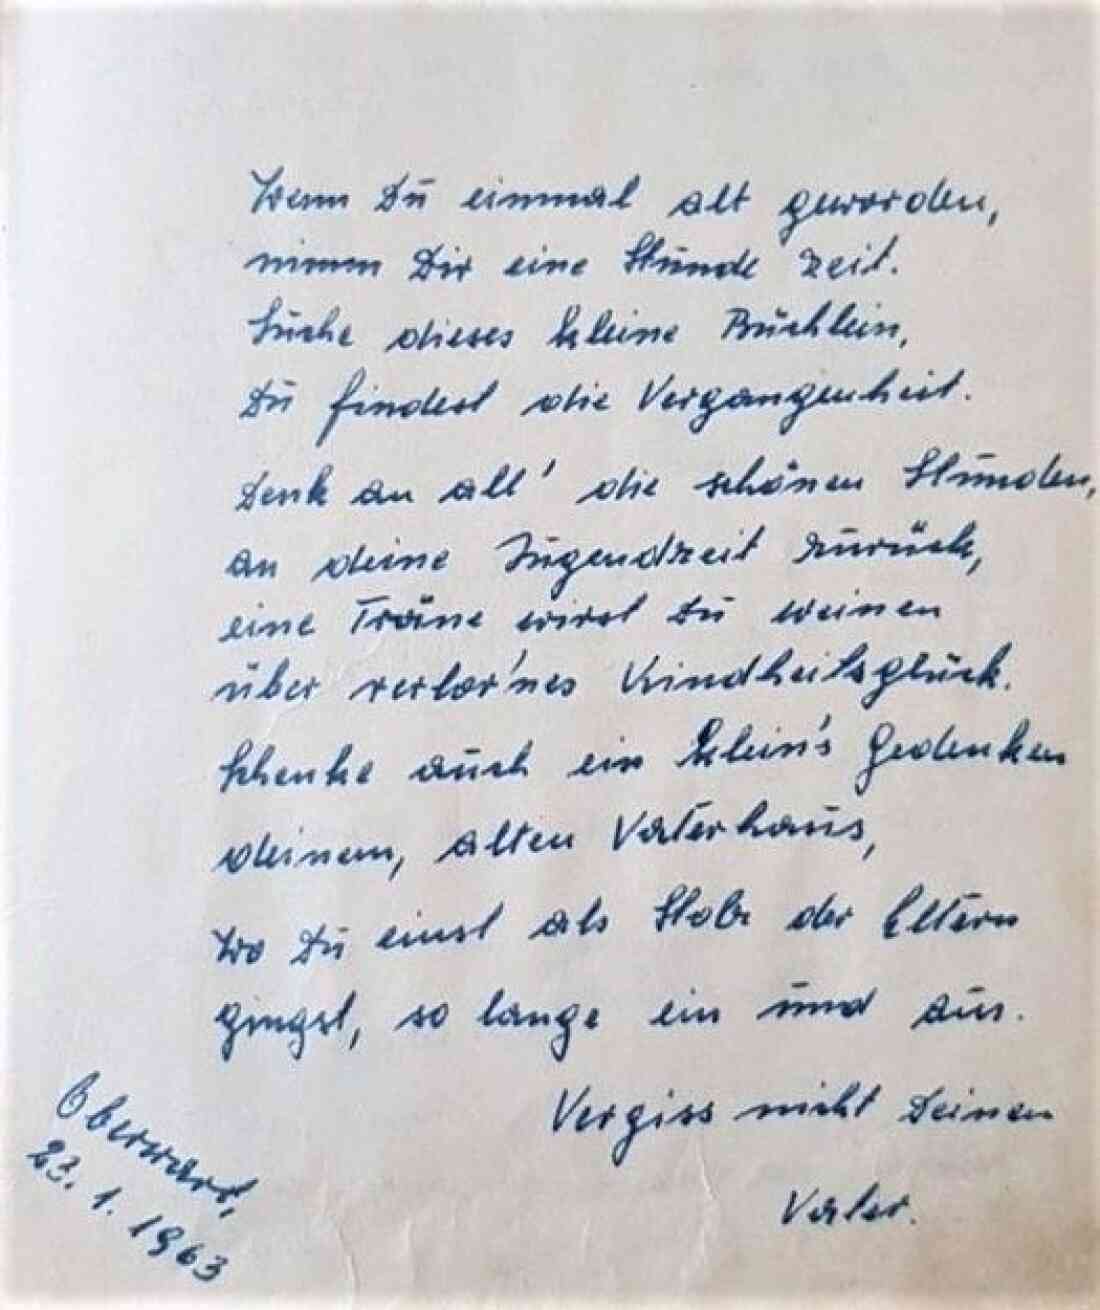 Wenn Du einmal alt geworden,
nimm Dir eine Stunde Zeit.
Suche dieses kleine Büchlein,
Du findest die Vergangenheit.
Denk an all' die schönen Stunden,
an deine Jugendzeit zurück,
eine Träne wirst Du weinen
über verlor'nes Kindheitsglück.
Schenke auch ein klein's Gedenken
deinem, alten Vaterhaus,
Wo Du einst als Stolz der Eltern
gingst, so lange ein und aus.
Vergiss nicht Deinen
Vater.
Oberwart,
23. 1. 1963